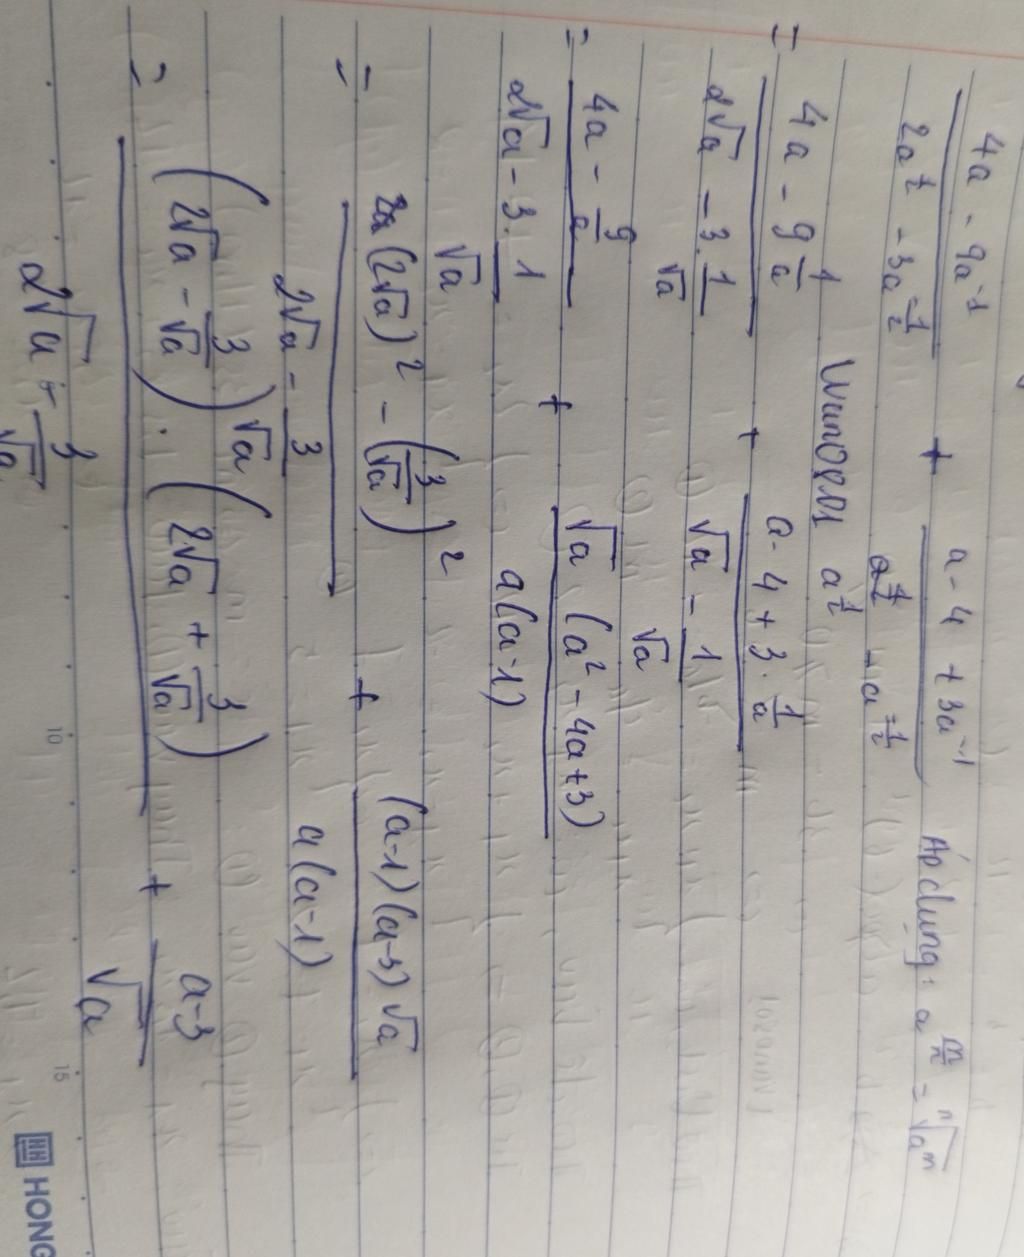 4a - 9a⁻¹ / 2a^½ - 3a^-½ + a - 4 + 3a⁻¹ / a^½ - a^-½ Áp dụng: a^m/n = ⁿ√aᵐ
a^½
= 4a - 9 1/a / 2√a - 3 1/√a + a - 4 + 3 . 1/a / √a - 1/√a
= 4a - 9/a / 2√a - 3 . 1/√a + √a (a² - 4a + 3) / a(a-1)
= (2√a)² - (3/√a)² / 2√a - 3/√a + (a-1)(a-3)√a / a(a-1)
= (2√a - 3/√a) . (2√a + 3/√a) / 2√a - 3/√a + a-3 / √a
10
15
HONG